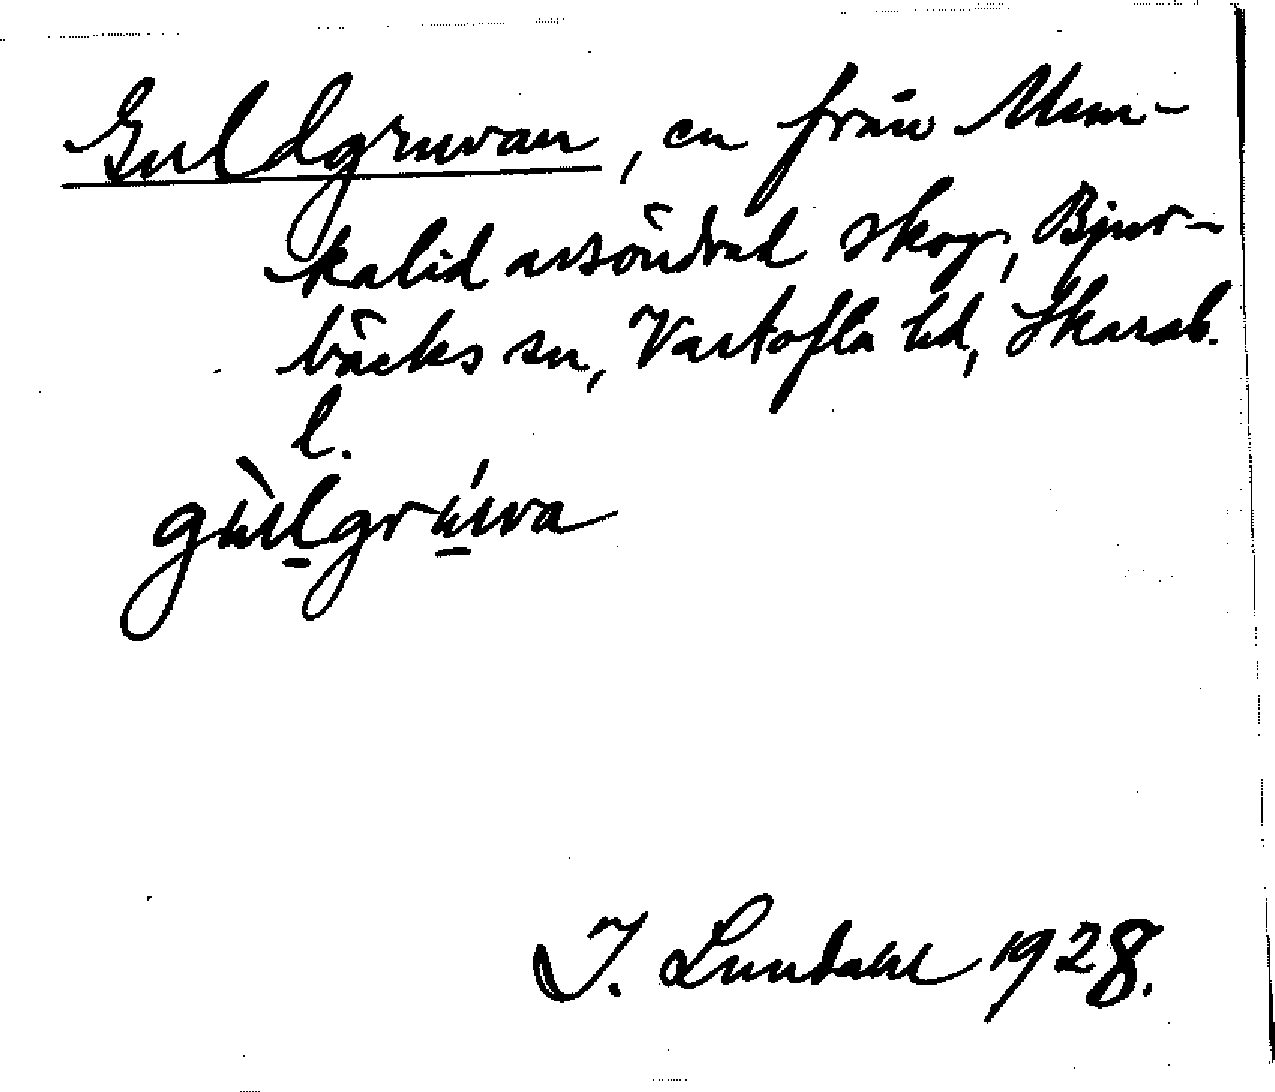 Guldgruvan, en från Mun-
kalid avsöndrad skog, Bjur-
bäcks sn, Vartofla hd, Skarab.
l.
gùlgrúva
I. Lundahl 1928.